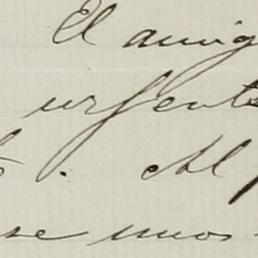 El amig
urgente
. Al
se unos